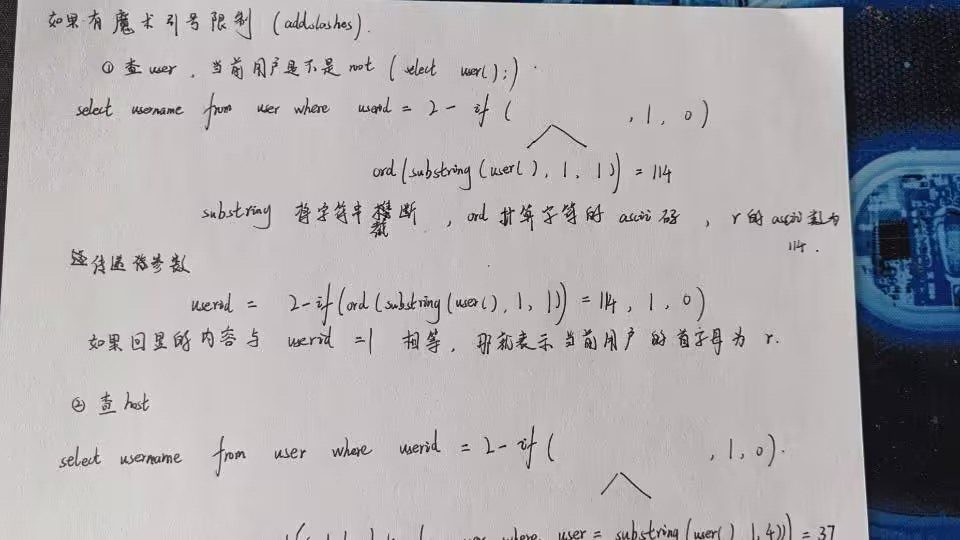 如果有魔术引号限制 (addslashes).
① 查user，当前用户是不是root (select user();).
select username from user where userid = 2-if( ,1,0)
ord(substring(user(),1,1)) = 114
substring 将字符串截断，ord 计算字符的 ascii 码，r的ascii数为
114.
传递参数
userid = 2-if(ord(substring(user(),1,1)) = 114,1,0)
如果回显的内容与 userid =1 相等，那就表示当前用户的首字母为 r.
② 查host
select username from user where userid = 2-if( ,1,0).
where user = substring(user(),1,4))) = 37